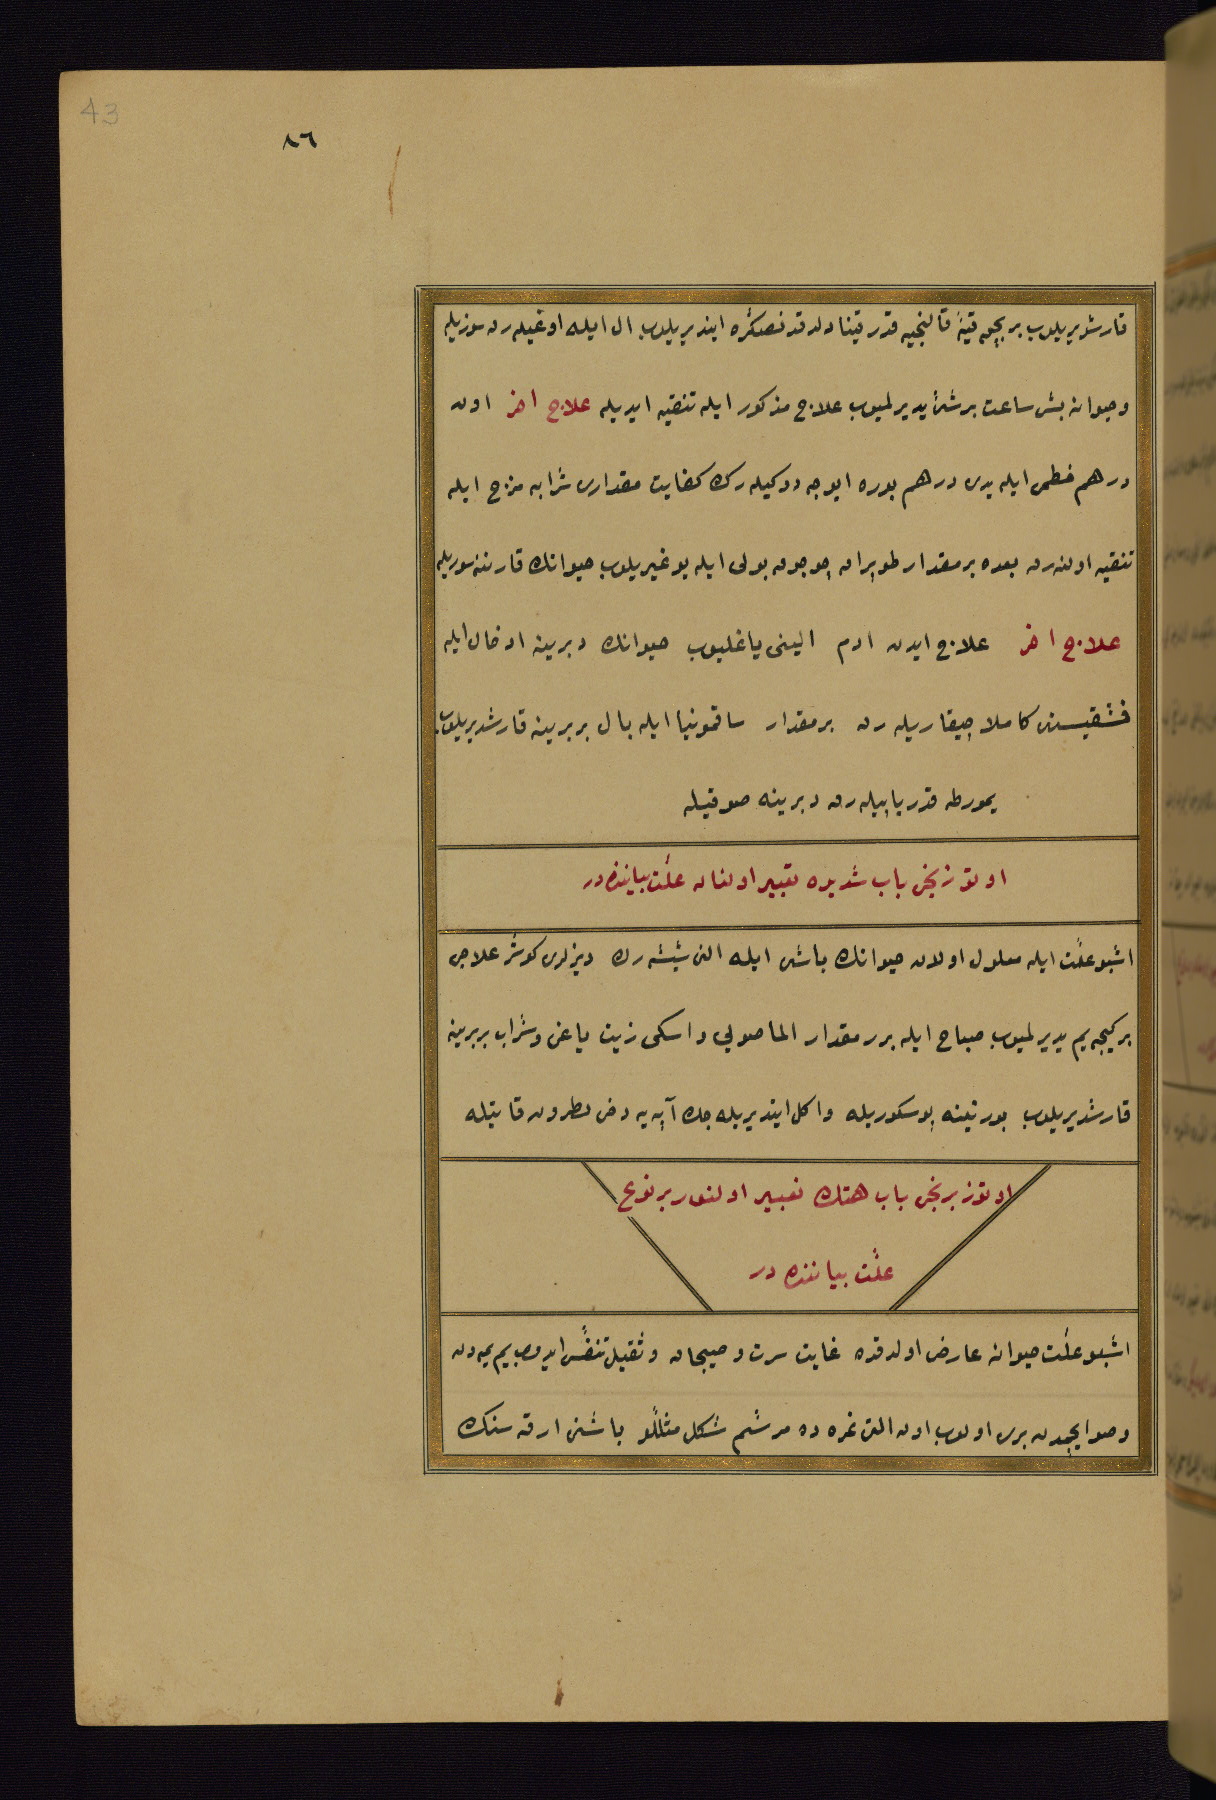 43
٨٦
قارشدیریلوب بر بچق قیه قالنجیه قدر قیناد لدقدنصکره ایندیریلوب ال ایله اوغیله رق سوزیله
وحیوانه بش ساعت برشئ یدیرلمیوب علاج مذکور ایله تنقیه ایدیله علاج اخر اون
درهم خطمی ایله یدی درهم بوره ایوجه دوکیله رک کفایت مقداری شرابه مزج ایله
تنقیه اولنه رق بعده بر مقدار طوپراق چوجوق بولی ایله یوغیریلوب حیوانك قارننه سوریله
علاج اخر علاج ایدن ادم الینی یاغلیوب حیوانك دبرینه ادخال ایله
فشقیسنی کاملا چیقاریله رق بر مقدار ساقمونیا ایله بال بربرینه قارشدیریلوب
یمورطه قدر یاپیله رق دبرینه صوقیله
اوتوزنجی باب شدیده تعبیر اولنان علت بیاننده در
اشبو علت ایله معلول اولان حیوانك باشی ایله النی شیشه رك دیزلری کوشر علاجی
بر کیجه یم یدیرلمیوب صباح ایله برر مقدار الما صویی واسکی زیت یاغی وشراب بربرینه
قارشدیریلوب بورنینه پوسکوریله واکل ایتدیریله جك آرپه یه دخی نطرون قاتیله
اوتوز برنجی باب هتك تعبیر اولنور بر نوع
علت بیاننده در
اشبو علت حیوانه عارض اولدقده غایت سرت وهیجان وثقیل تنفس ایدوب یم یمه دن
وصو ایچمدن بری اولوب اون التی نمره ده مرتسم شکل مثللو باشنی ارقه سنك